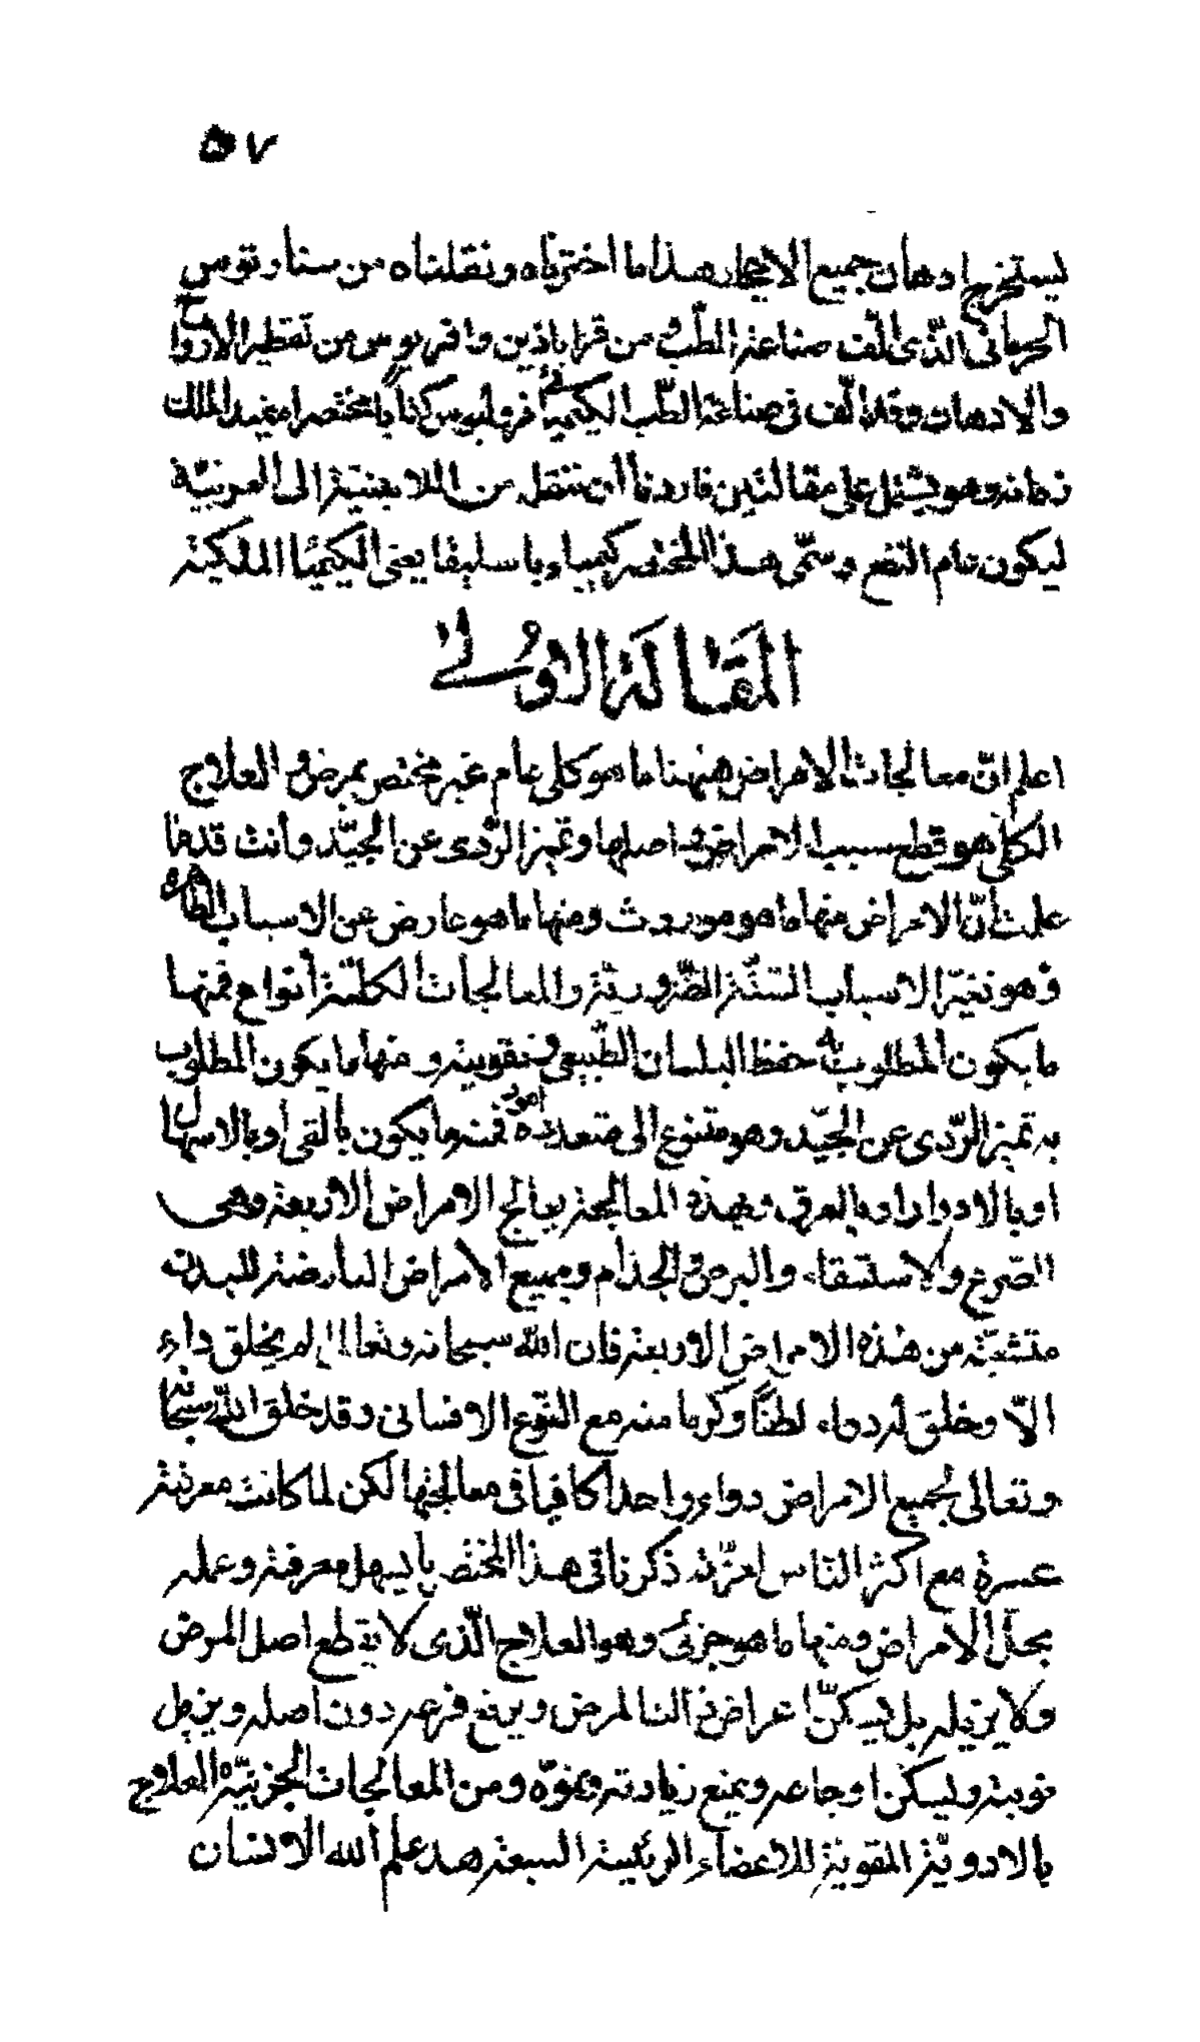 ٥٧
يستخرج ادهان جميع الاحجار هذا ما اخترناه ونقلناه من سنارتوس
الجرماني الذّي الّف صناعة الطّب من قراباذين واقريوس من تقطير الارواح
والادهان وقد الّف في صناعة الطّب الكيميائي قروليوس كتاباً مختصرا عند الملك
زمانه وهو يشتمل على مقالتين فاردنا ان ننقل من اللاتينية الى العربيّة
ليكون تام النّفع وسمّى هذا المختصر كيمياء باسليقا يعنى الكيميا الملكية
المقالة الاولى
اعلم انّ معالجات الامراض منها ما هو كلى عام غير مختص بمرض والعلاج
الكلّي هو قطع سبب الامراض واصلها وتميز الرّدى عن الجيّد وأنت قد
علمت أنّ الامراض منها ما هو موروث ومنها ما هو عارض عن الاسباب الظاهرة
وهو تغيّر الاسباب الستّة الضّرورية والمعالجات الكليّة أنواع فمنها
ما يكون المطلوب به حفظ البلسان الطّبيعى وتقويته ومنها ما يكون المطلوب
به تميز الرّدى عن الجيّد وهو متنوع الى امور متعددة فمنه ما يكون بالقى او بالاسهال
او بالادوار او بالعرق وبهذه المعالجة يعالج الامراض الاربعة وهى
الصّرع والاستسقاء والبرص والجذام وجميع الامراض العارضة للبدن
متشعّبة من هذه الامراض الاربعة فان الله سبحانه وتعالى لم يخلق داء
الّا وخلق له دواء لطفاً وكرما منه مع النّوع الانسانى وقد خلق اللّه سبحانه
وتعالى لجميع الامراض دواء واحدا كافيا فى معالجتها لكن لما كانت معرفته
عسرة مع اكثر النّاس لعزّته ذكرنا فى هذا المختصر ما يسهل معرفته وعمله
بجلّ الأمراض ومنها ما هو جزئى وهو العلاج الّذى لا يقطع اصل المرض
ولا يزيله بل يسكنّ اعراض ذالك المرض ويرفع فرعه دون اصله ويزيل
نوبته ويسكن اوجاعه ويمنع زيادته ونموّه ومن المعالجات الجزئيّة العلاج
بالادويّة المقوية للاعضاء الرئيسة السبعة هد علم ألله الانسان